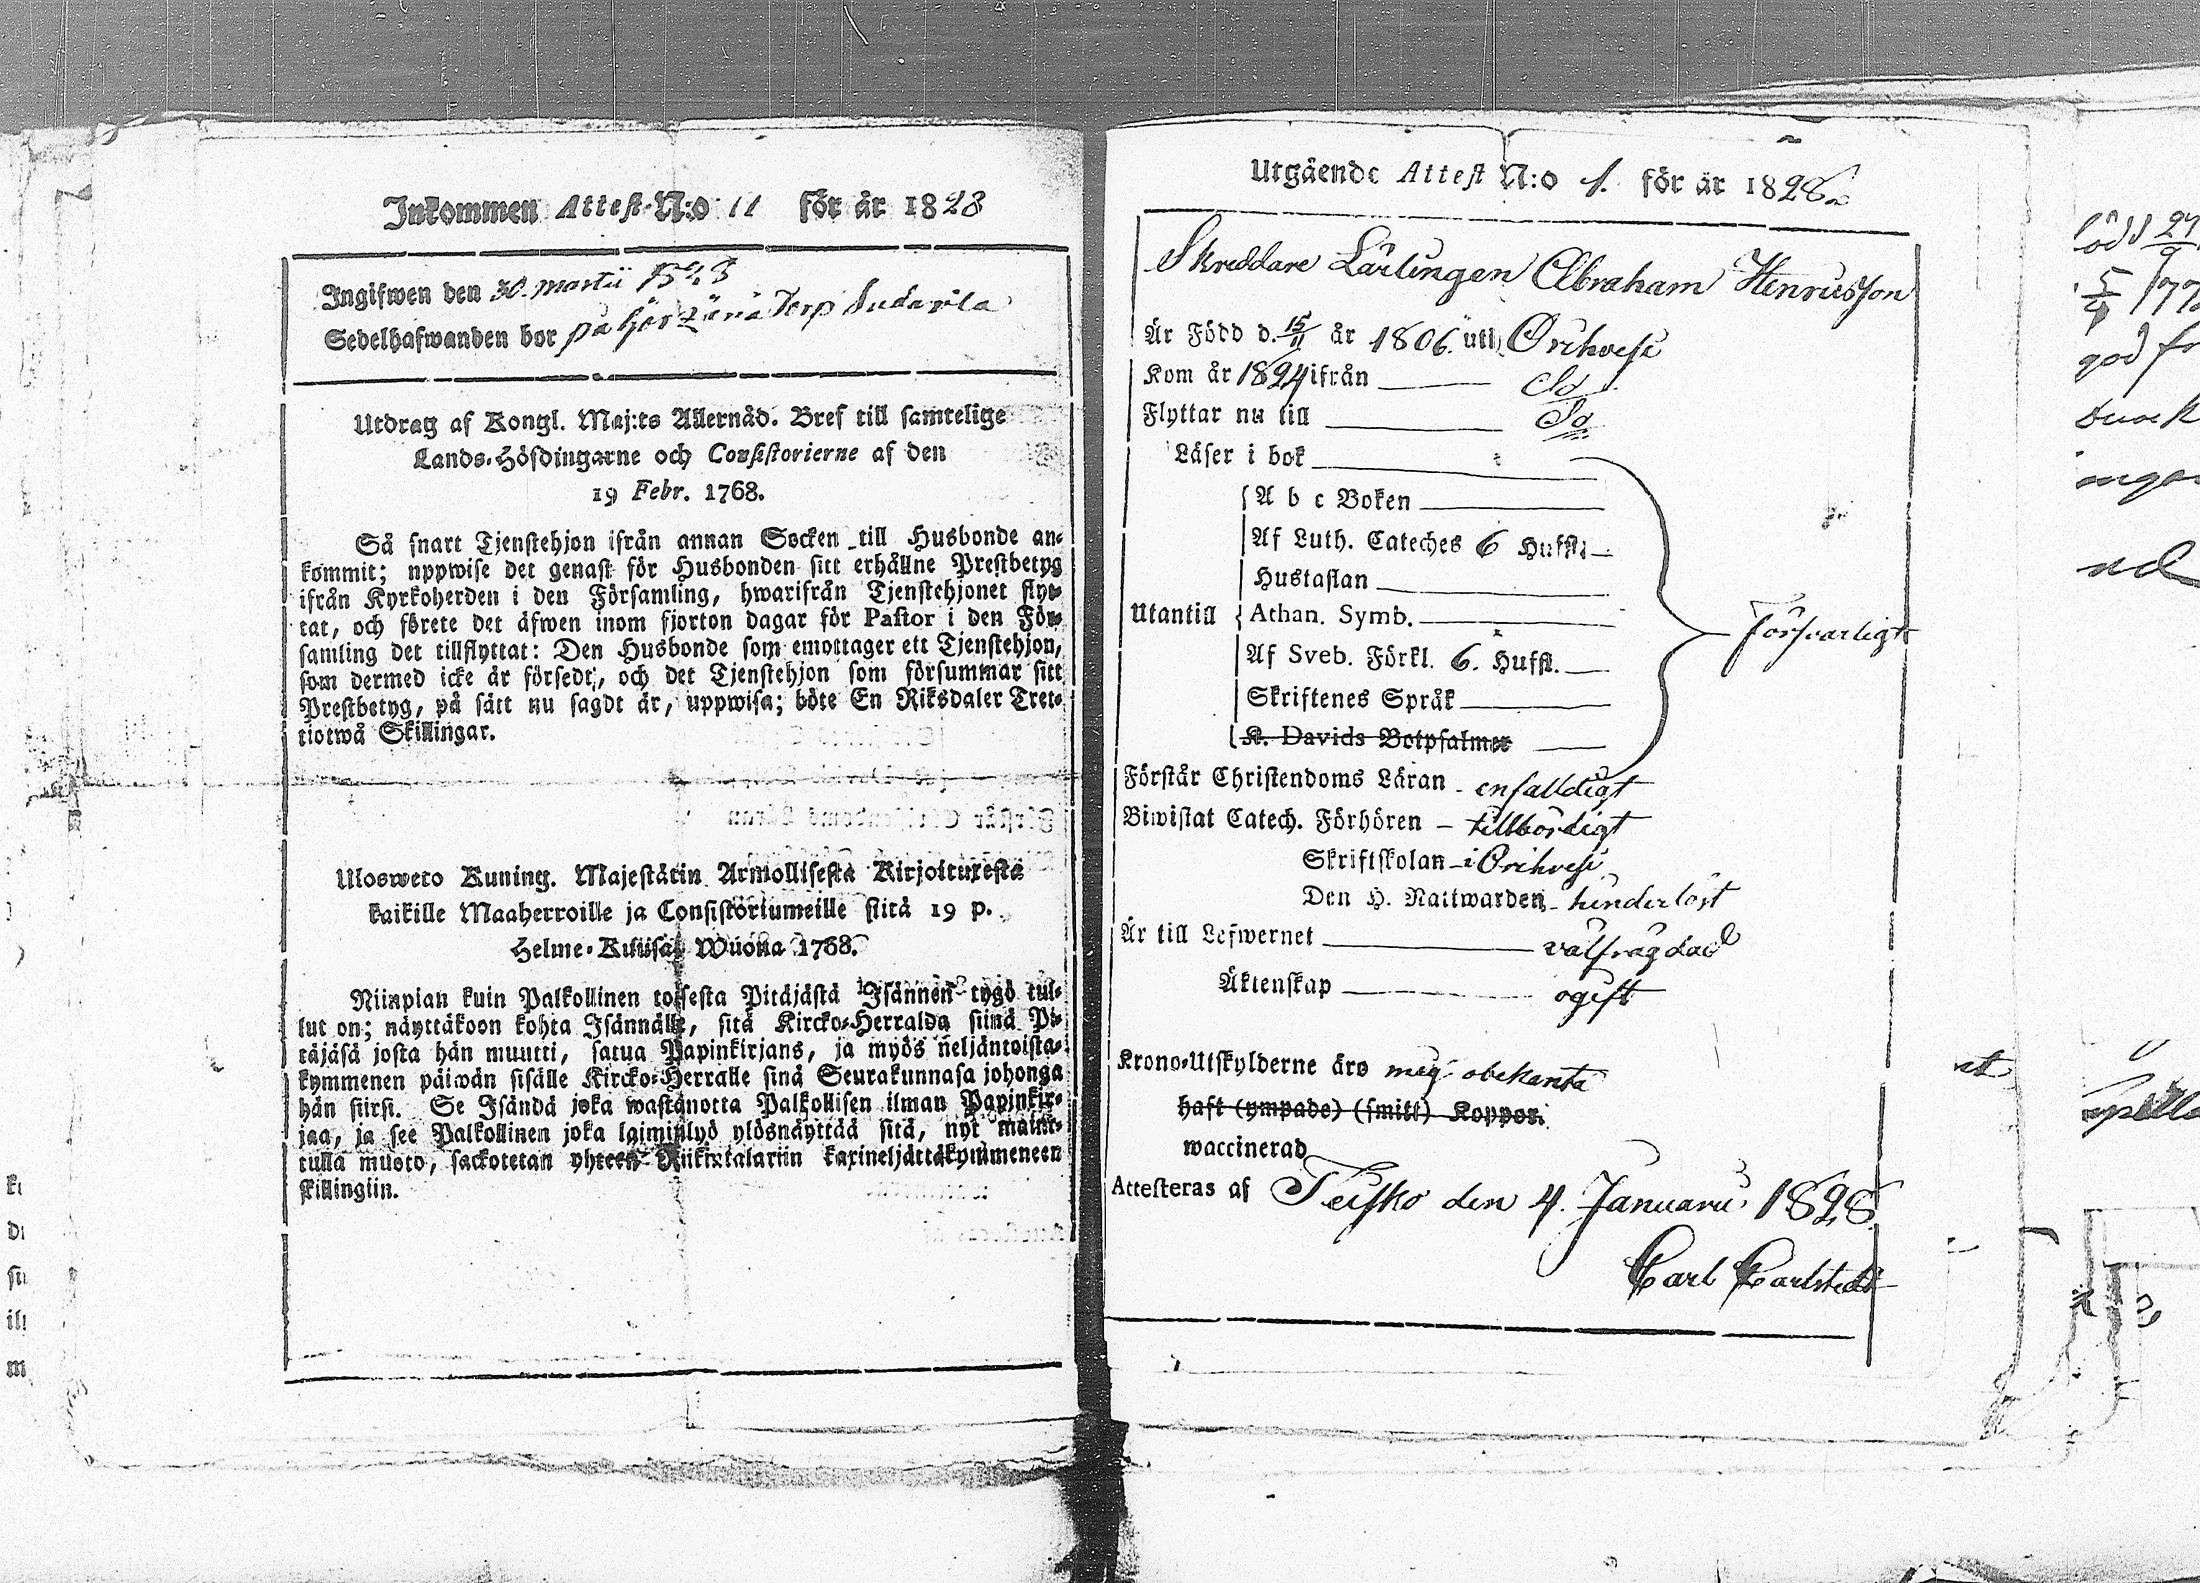 Inkommen Attest N:o 11 för år 1828
Ingifwen den 30. martii
Sedelhafwanden bor på Torp
Utdrag af Kongl. Maj:ts Allernåd. Bref till samtelige
Lands-Höfdingarne och Consistorierne af den
19 Febr. 1768.
Så snart Tjenstehjon ifrån annan Socken till Husbonde an-
kommit; uppwise det genast för Husbonden sitt erhållne Prestbetyg
ifrån Kyrkoherden i den Församling, hwarifrån Tjenstehjonet flyt-
tat, och förete det äfwen inom fjorton dagar för Pastor i den För-
samling det tillflyttat: Den Husbonde som emottager ett Tjenstehjon,
som dermed icke är försedt, och det Tjenstehjon som försummar sitt
Prestbetyg, på sätt nu sagdt är, uppwisa; böte En Riksdaler Tret-
tiotwå Skillingar.
Ulosweto Kuning. Majestätin Armollisesta Kirjoituxesta
kaikille Maaherroille ja Consistoriumeille siitä 19 p.
Helme-Kuusa Wuona 1768.
Niinpian kuin Palkollinen toisesta Pitäjästä Isännen tygö tul-
lut on; näyttäkoon kohta Isännälle, sitä Kircko-Herralda siinä Pi-
täjäsä josta hän muutti, satua Papinkirjans, ja myös neljäntoista-
kymmenen päiwän sisälle Kircko-Herralle sinä Seurakunnasa johonga
hän siirsi. Se Isändä joka wastanotta Palkollisen ilman Papinkir-
jaa, ja see Palkollinen joka laiminlyö ylösnäyttää sitä, nyt mainit-
tulla muoto, sackotetan yhteen Riikintalariin kaxineljättäkymmeneen
skillingiin.
Utgående Attest N:o 1. för år 1828
Skreddare Lärlingen Abraham Henrusson
Är Född d. 15/11 år 1806 uti Orihvesi
Kom år 1824 ifrån Do
Flyttar nu till Do
Läser i bok
A b c Boken
Af Luth. Cateches 6 Hufst.
Hustaflan
Utantill Athan. Symb.
Försvarligt
Af Sveb. Förkl. 6. Hufst.
Skriftenes Språk
K. Davids Botpsalmer
Förstår Christendoms Läran enfalldigt
Biwistat Catech. Förhören tillbördigt
Skriftskolan i Orihvesi
Den H. Nattwarden hinderlöst
Är till Lefwernet välfrägdad
Äktenskap ogift
Krono-Utskylderne äro mig obekanta
haft (ympade) (smitt) Koppor.
waccinerad
Attesteras af Teisko den 4. Januarii 1828
Carl Carlstedt